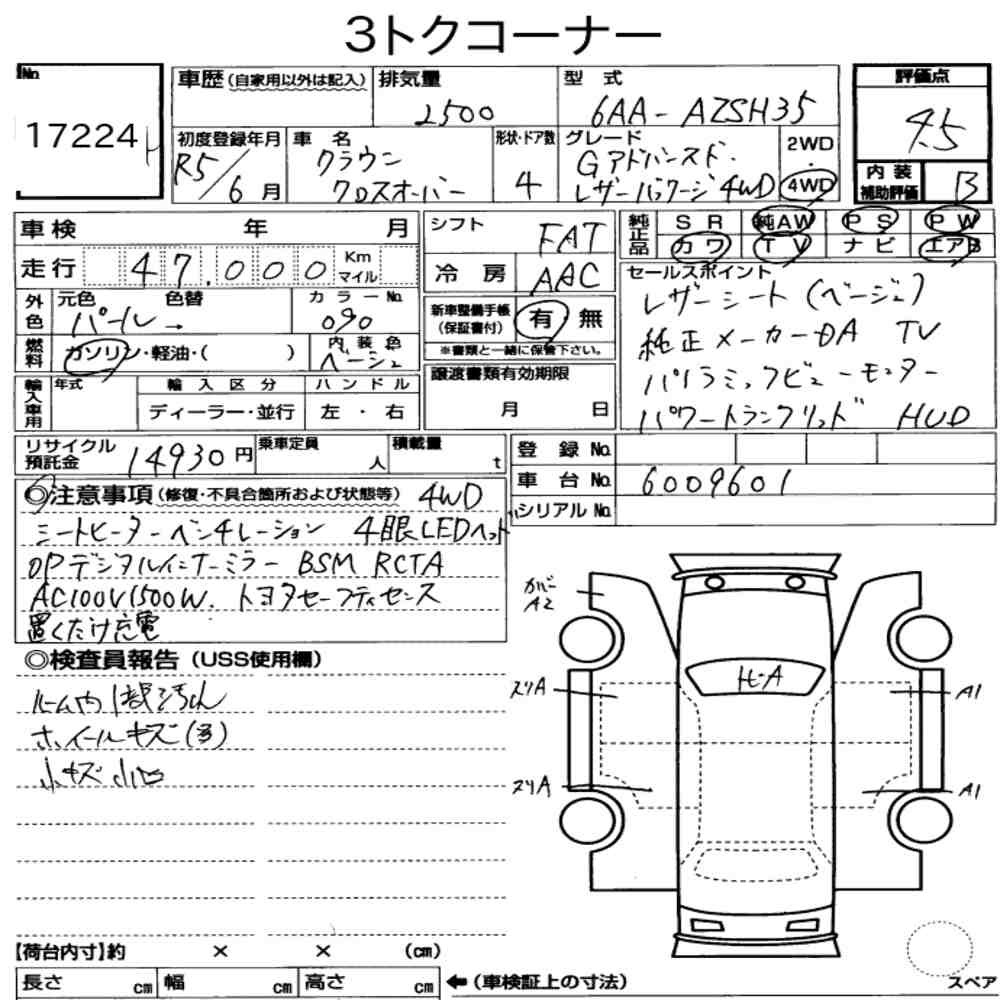 3トクコーナー
No.
17224
車歴 (自家用以外は記入) 排気量 2500 型式 6AA-AZSH35
評価点 4.5
内装補助評価 B
初度登録年月 R5/6月
車名 クラウン クロスオーバー
形状・ドア数 4
グレード Gアドバンスド・レザーパッケージ 4WD
2WD ・ 4WD
車検 年 月
走行 47,000 Km マイル
シフト FAT
冷房 AAC
純正品 SR 純AW PS PW
カワ TV ナビ エアB
外色 元色 パール 色替 → カラーNo. 090
新車整備手帳(保証書付) 有 無
※書類と一緒に保管下さい。
燃料 ガソリン・軽油・( ) 内装色 ベージュ
輸入車用 年式 輸入区分 ハンドル
ディーラー・並行 左・右
譲渡書類有効期限
月 日
セールスポイント
レザーシート(ベージュ)
純正メーカーDA TV
パノラミックビューモニター
パワートランクリッド HUD
リサイクル預託金 14930円 乗車定員 人 積載量 t
登録No.
車台No. 6009601
シリアルNo.
◎注意事項(修復・不具合箇所および状態等) 4WD
シートヒーターベンチレーション 4眼LEDヘッド
OPデジタルインナーミラー BSM RCTA
AC100V1500W. トヨタセーフティセンス
置くだけ充電
◎検査員報告(USS使用欄)
ルーム内
ホイールキズ(多)
小キズ 小凹
カバーA2
スリA
スリA
A1
A1
【荷台内寸】約 × × (cm)
長さ cm 幅 cm 高さ cm
←(車検証上の寸法)
スペア